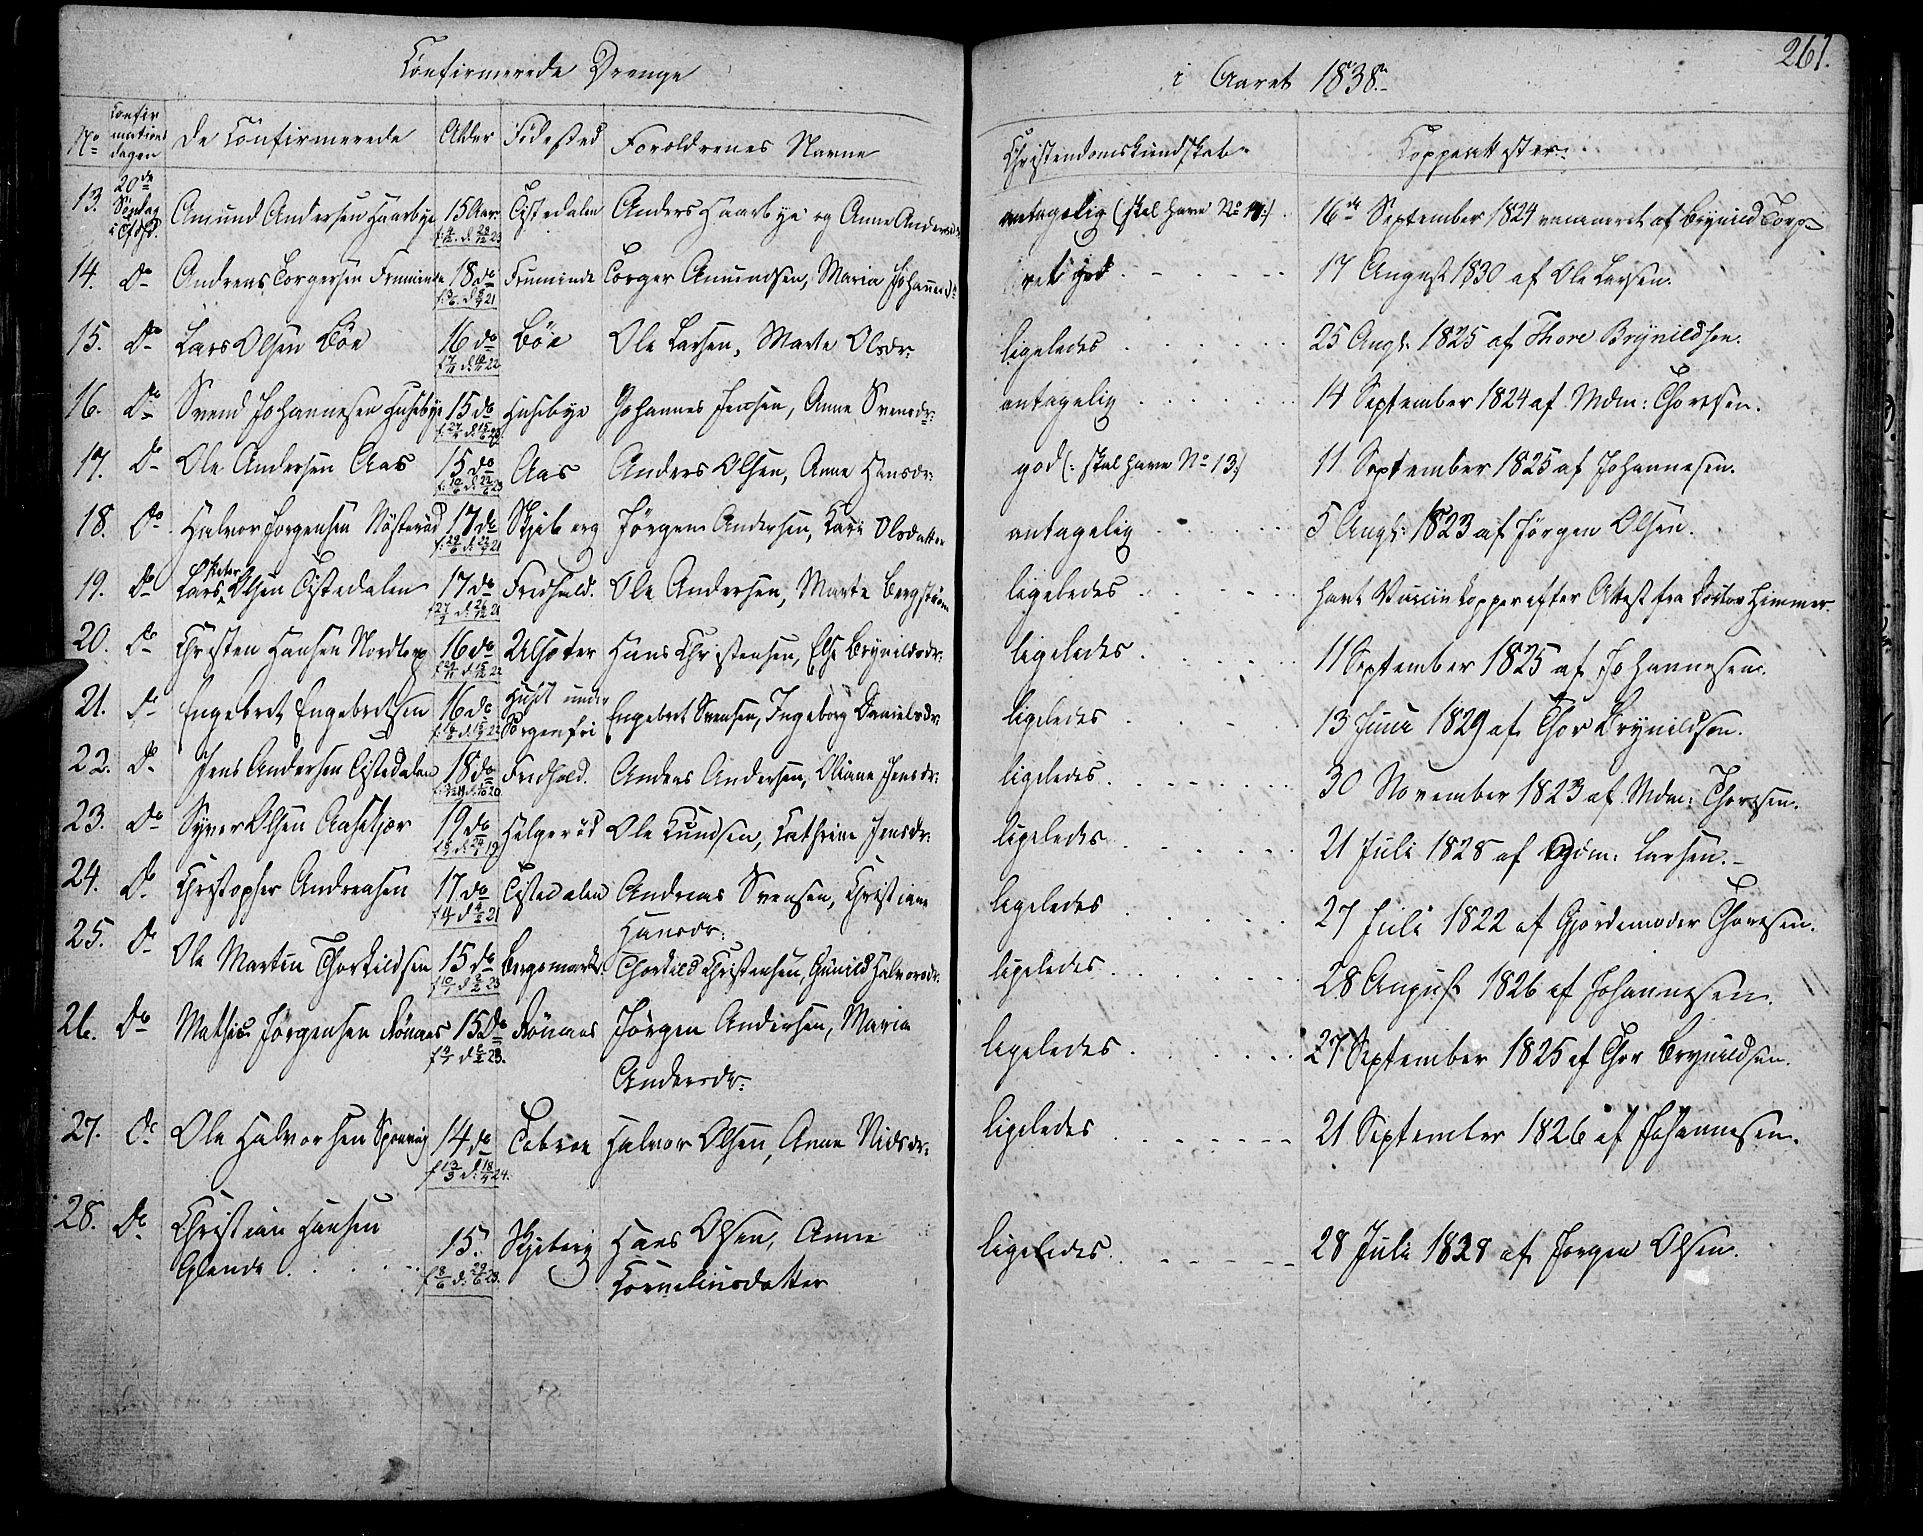 Confirmerede Drenge
i Aaret 1838.
261.
No Confirmations dagen De Confirmerede Alder Fødested Forældrenes Navne Christendomskundskab Koppeattester
13. 20de Søndag Amund Andersen Haarbye 15 Aar Tistedalen Anders Haarbye og Anne Andersdr antagelig (skal have No 17) 16de September 1824 vaccineret af Brynild Torp
14. Do Andreas Torgersen 18 do Torger Amundsen, Maria Johannesdr 17 August 1830 af Ole Larsen.
15. Do Lars Olsen Böe 16 do Böe Ole Larsen, Marte Olsdr: ligeledes 25 Augt: 1825 af Thore Brynildsen.
16. Do Svend Johannesen Husebye 15 do Husebye Johannes Jensen, Anne Svensdr: antagelig 14 September 1824 af Mdm: Thoresen.
17. Do Ole Andersen Aas 15 do Aas Anders Olsen, Anne Hansdr: god (: skal have No 13:) 11 September 1825 af Johannesen.
18. Do Halvor Jørgensen 17 do Skjeberg Jørgen Andersen, Kari Olsdatter antagelig 5 Augt: 1823 af Jørgen Olsen.
19. Do Lars Peter Olsen Tistedalen 17 do Fredhald. Ole Andersen, Marte Bergstrøm ligeledes havt Vaccinkopper efter Attest fra Doctor Himmer.
20. Do Christen Hansen 16 do Hans Christensen, Else Brynildsdr: ligeledes 11 September 1825 af Johannesen.
21. Do Engebret Engebretsen 16 do under Sorgenfri Engebret Svensen, Ingeborg Danielsdr ligeledes 13 Juni 1829 af Thor Brynildsen.
22. Do Jens Andersen Tistedalen 18 do Fredhald. Anders Andersen, Oliane Jensdr: ligeledes 30 November 1823 af Mdm: Thoresen.
23. Do Syver Olsen 19 do Helgerød Ole Knudsen, Kathrine Jensdr: ligeledes 21 Juli 1828 af Larsen.
24. Do Christopher Andreasen 17 do Tistedalen Andreas Svensen, Christiane Hansdr: ligeledes 27 Juli 1822 af Gjordemoder Thoresen.
25. Do Ole Martin Thorkildsen 15 do Thorkild Christensen, Gunild Halvorsdr: ligeledes 28 August 1826 af Johannesen.
26. Do Mathis Jørgensen Rönnes 15 Do Rönnes Jørgen Andersen, Maria Andersdr: ligeledes 27 September 1825 af Thor Brynildsen.
27. Do Ole Halvorsen 14 do Halvor Olsen, Anne Nielsdr: ligeledes 21 September 1826 af Johannesen.
28. Do Christian Hansen Glende 15 Skjeberg Hans Olsen, Anne Korneliusdatter ligeledes 28 Juli 1828 af Jørgen Olsen.